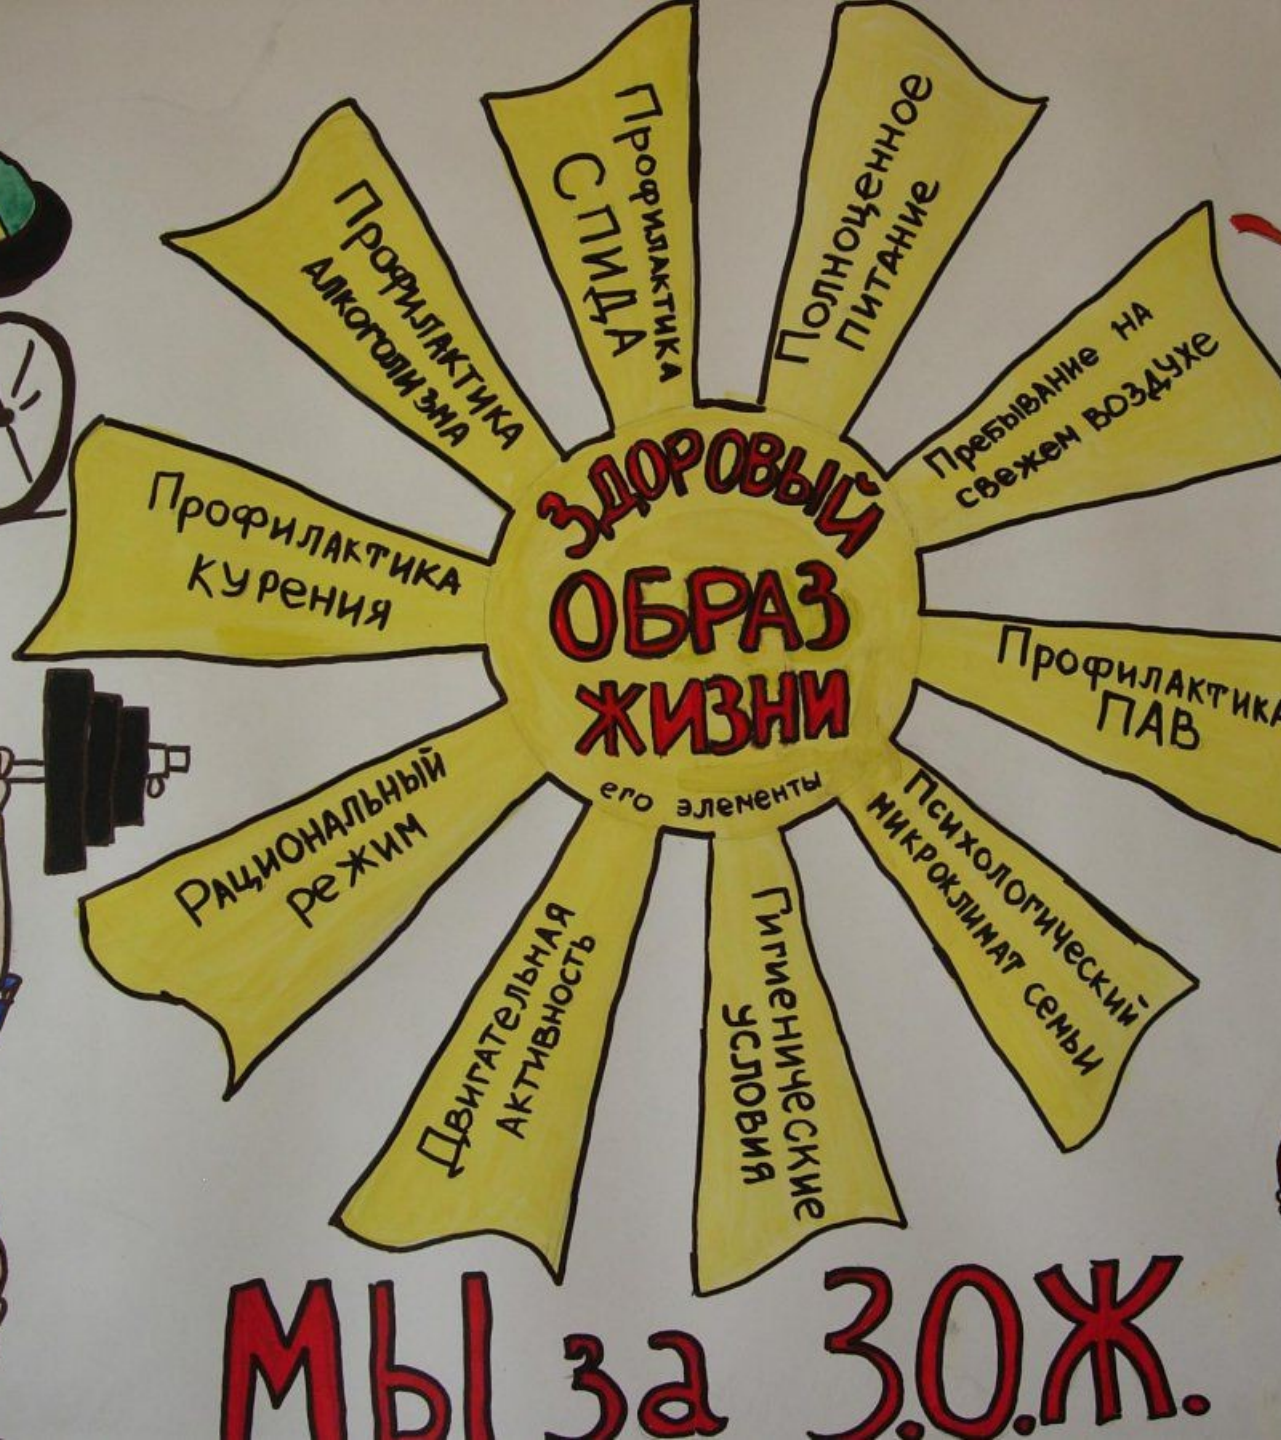 ЗДОРОВЫЙ
ОБРАЗ
ЖИЗНИ
его элементы
Полноценное
питание
Пребывание на
свежем воздухе
Профилактика
ПАВ
Психологический
микроклимат семьи
Гигиенические
условия
Двигательная
активность
Рациональный
режим
Профилактика
курения
Профилактика
алкоголизма
Профилактика
СПИДА
МЫ за З.О.Ж.